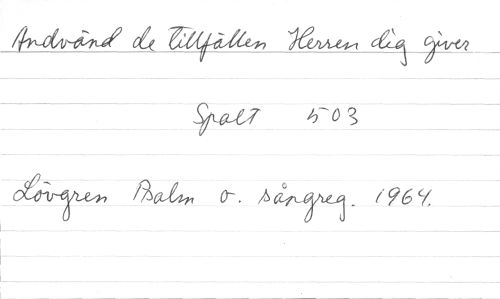 Andvänd de tillfällen Herren dig giver
Spalt 503
Lövgren Psalm o. sångreg. 1964.